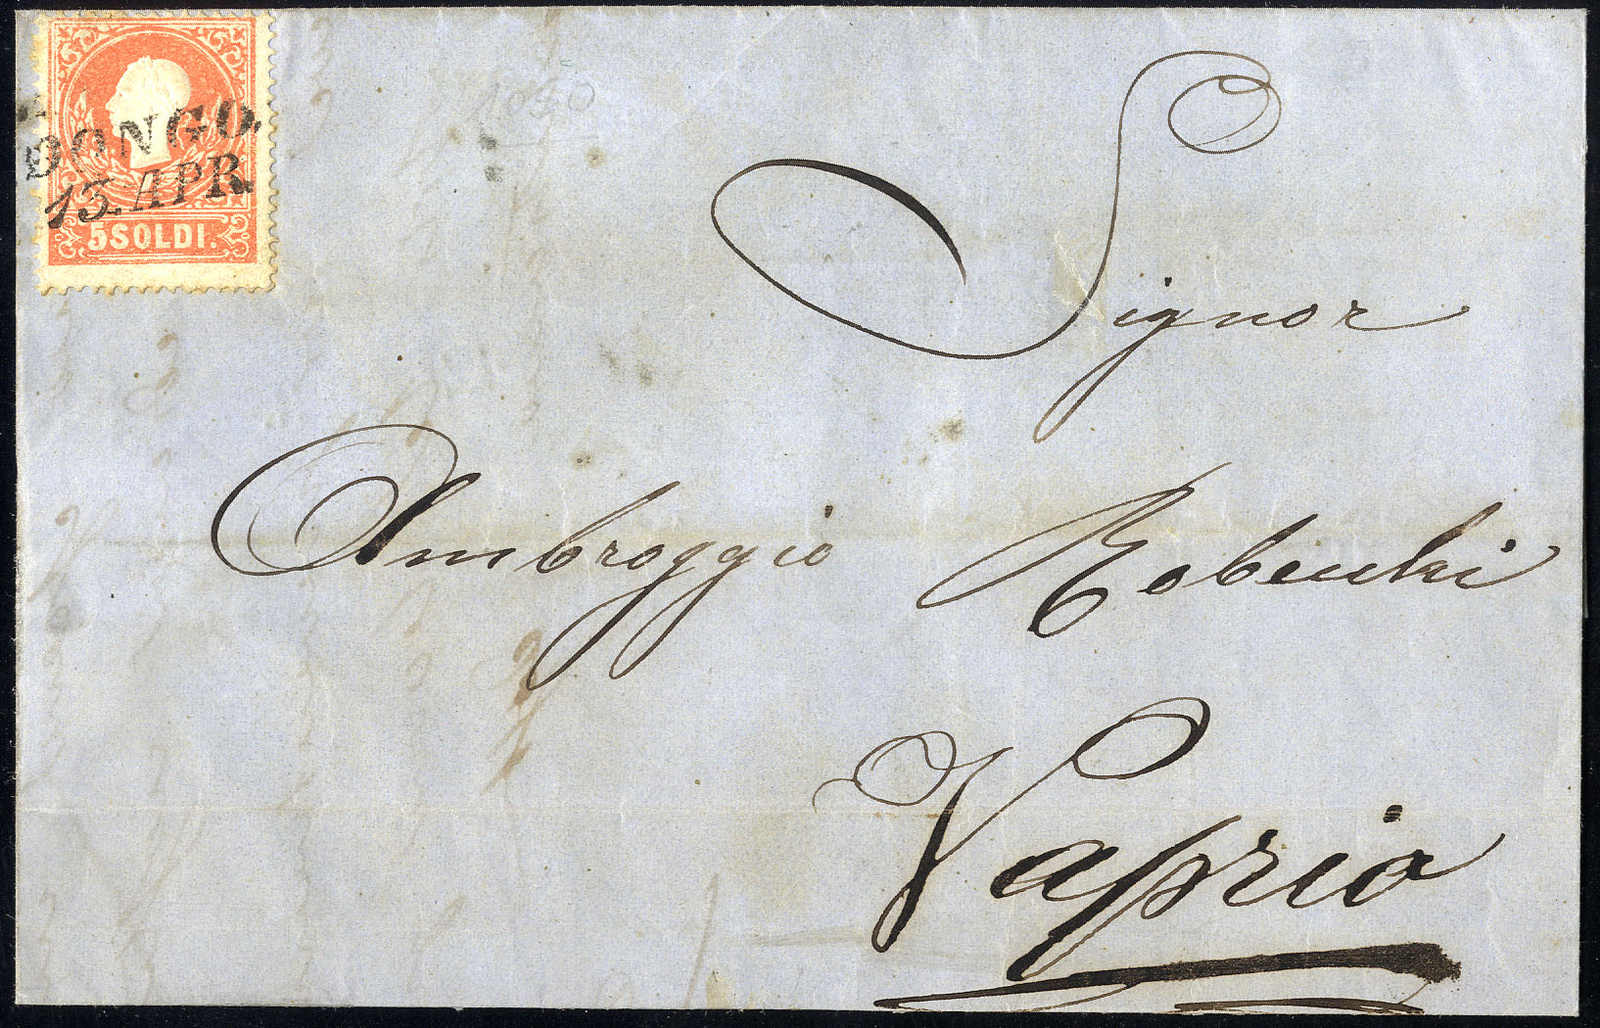 DONGO.
13. APR
5 SOLDI.
Signor
Ambroggio Robecchi
Vaprio